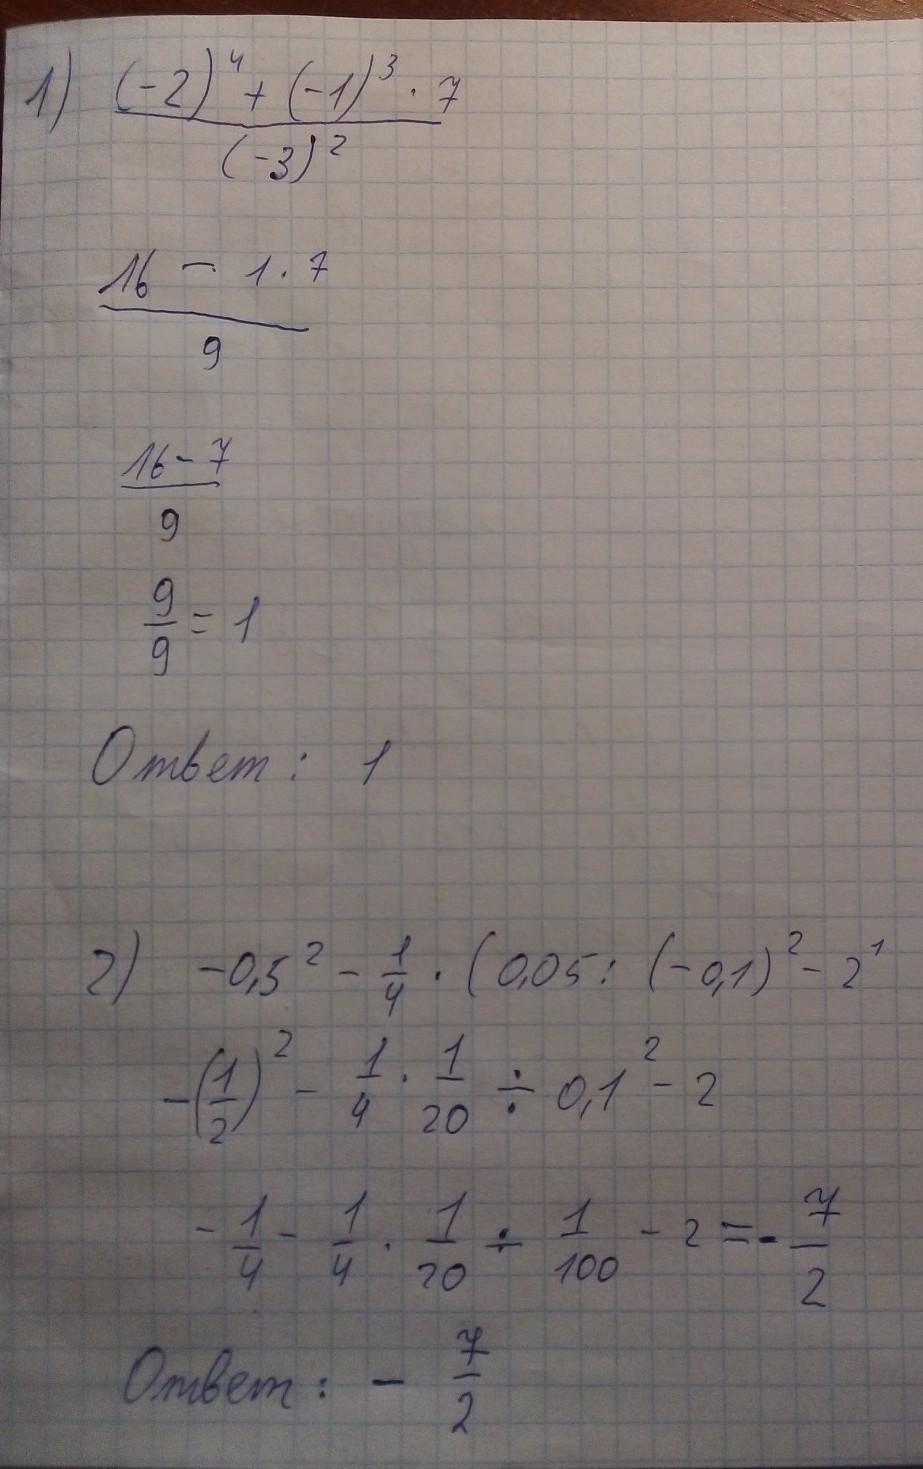 1) (-2)⁴ + (-1)³ · 7
(-3)²
16 - 1 · 7
9
16 - 7
9
9/9 = 1
Ответ: 1
2) -0,5² - 1/4 · (0,05 : (-0,1)² - 2¹
-(1/2)² - 1/4 · 1/20 ÷ 0,1² - 2
-1/4 - 1/4 · 1/20 ÷ 1/100 - 2 = - 7/2
Ответ: - 7/2